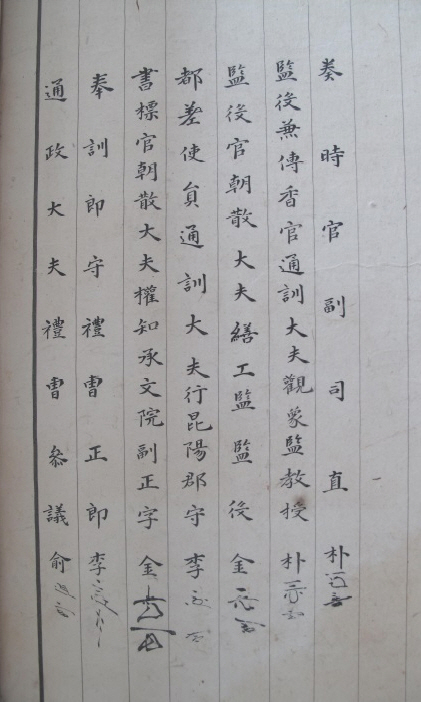 奏時官副司直朴
監役兼傳香官通訓大夫觀象監教授朴
監役官朝散大夫繕工監監役金
都差使員通訓大夫行昆陽郡守李
書標官朝散大夫權知承文院副正字金
奉訓郎守禮曹正郎李
通政大夫禮曹參議俞